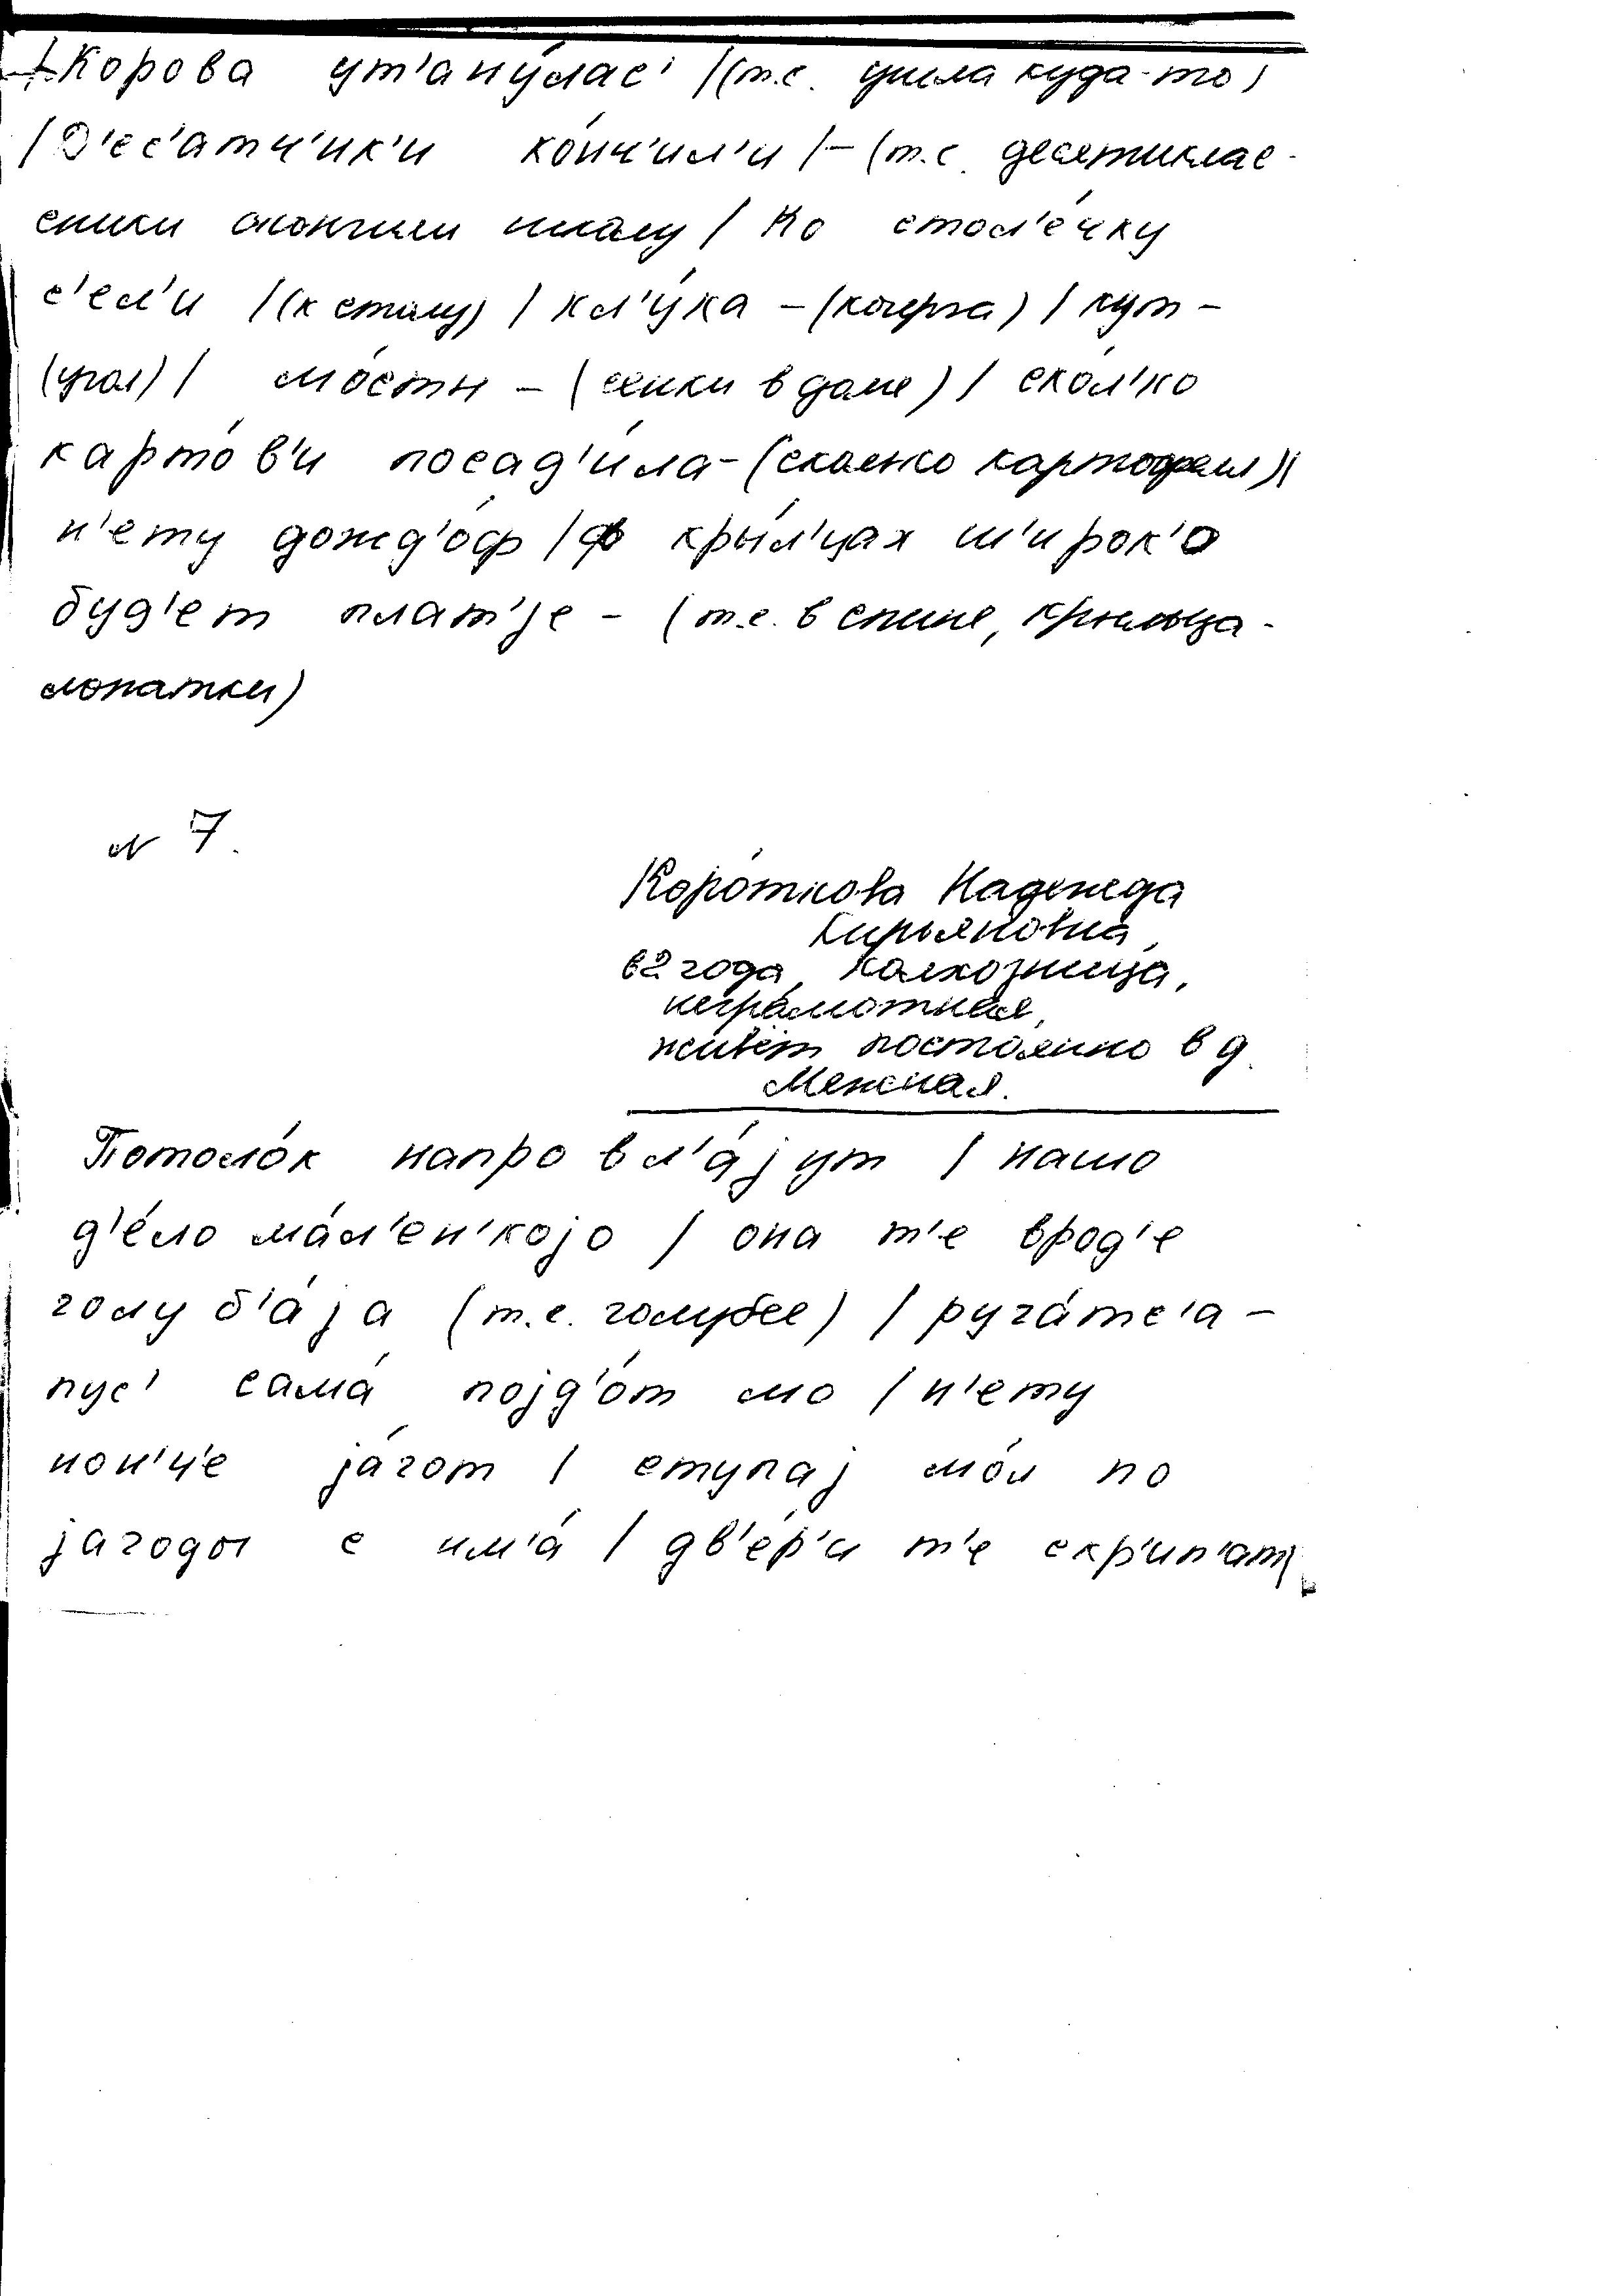 /Корова ут'ану́лас' /(т.е. ушла куда-то)
/Д'ес'атч'ик'и ко́нч'ил'и /– (т.е. десятиклас-
сники окончили школу / Ко стол'е́чку
с'ел'и /(к столу) / кл'у́ка – (кочерга) / кут –
(угол) / мо́сты – (сенки в доме) / ско́л'ко
карто́в'и посад'и́ла – (сколько картофеля)/
н'ету дожд'о́ф /ф кры́л'цах ш'ирок'о
буд'ет плат'jе – (т.е. в спине, крыльца-
лопатки)
N 7.
Коро́ткова Надежда
Кирьяновна,
62 года, колхозница,
неграмотная,
живёт постоянно в д.
Межная.
Потоло́к напро вл'а́jут / нашо
д'е́ло ма́л'ен'коjо / она т'е врод'е
голу б'а́jа (т.е. голубее) / руга́тс'а –
пус' сама́ поjд'о́т мо / н'ету
нон'ч'е jа́гот / ступаj мо́л по
jагоды с им'а́ / дв'е́р'и т'е скр'ип'ат/